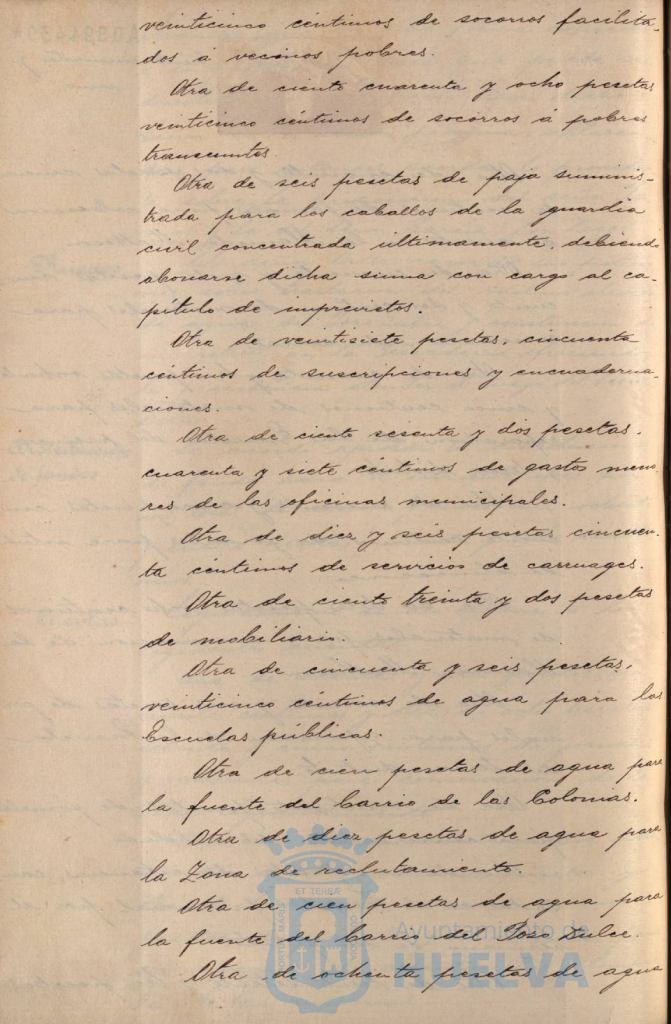 veinticinco céntimos de socorros facilita-
dos á vecinos pobres.
Otra de ciento cuarenta y ocho pesetas
veinticinco céntimos de socorros á pobres
transeuntes.
Otra de seis pesetas de paja suminis-
trada para los caballos de la guardia
civil concentrada últimamente, debiendo
abonarse dicha suma con cargo al ca-
pítulo de imprevistos.
Otra de veintisiete pesetas, cincuenta
céntimos de suscripciones y encuaderna-
ciones.
Otra de ciento sesenta y dos pesetas,
cuarenta y siete céntimos de gastos meno-
res de las oficinas municipales.
Otra de diez y seis pesetas cincuen-
ta céntimos de servicios de carruages.
Otra de ciento treinta y dos pesetas
de mobiliario.
Otra de cincuenta y seis pesetas,
veinticinco céntimos de agua para las
Escuelas públicas.
Otra de cien pesetas de agua para
la fuente del barrio de las Colonias.
Otra de diez pesetas de agua para
la Zona de reclutamiento.
Otra de cien pesetas de agua para
la fuente del barrio del Pozo Dulce.
Otra de ochenta pesetas de agua
ET TERRÆ
PORTUS MARIS
CUSTODIA
Ayuntamiento de
HUELVA